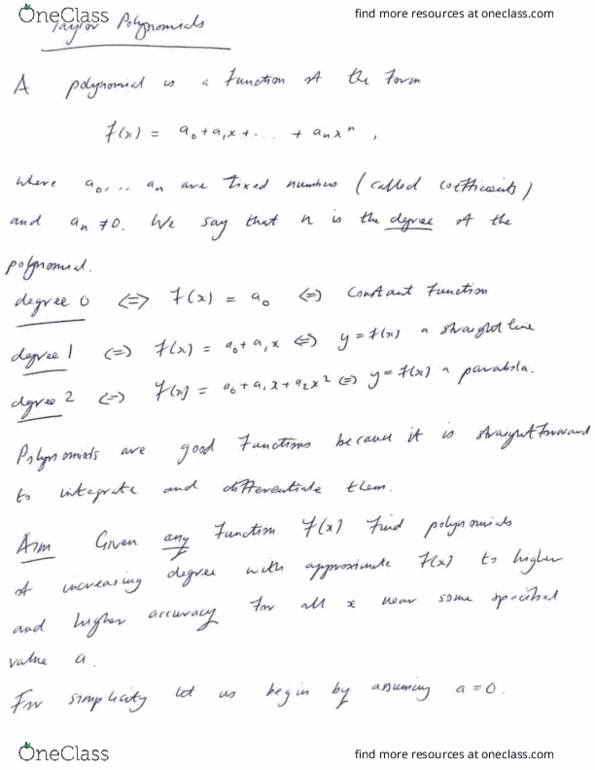 OneClass
find more resources at oneclass.com
Taylor Polynomials
A polynomial is a function of the form
f(x) = a₀+a₁x+... + aₙxⁿ ,
where a₀,.. aₙ are fixed numbers (called coefficients)
and aₙ ≠0. We say that n is the degree of the
polynomial.
degree 0 <=> f(x) = a₀ <=> constant function
degree 1 <=> f(x) = a₀+a₁x <=> y = f(x) a straight line
degree 2 <=> f(x) = a₀+a₁x+a₂x² <=> y = f(x) a parabola.
Polynomials are good functions because it is straightforward
to integrate and differentiate them.
Aim Given any function f(x) find polynomials
of increasing degree with approximate f(x) to higher
and higher accuracy for all x near some specified
value a.
For simplicity let us begin by assuming a=0.
OneClass
find more resources at oneclass.com